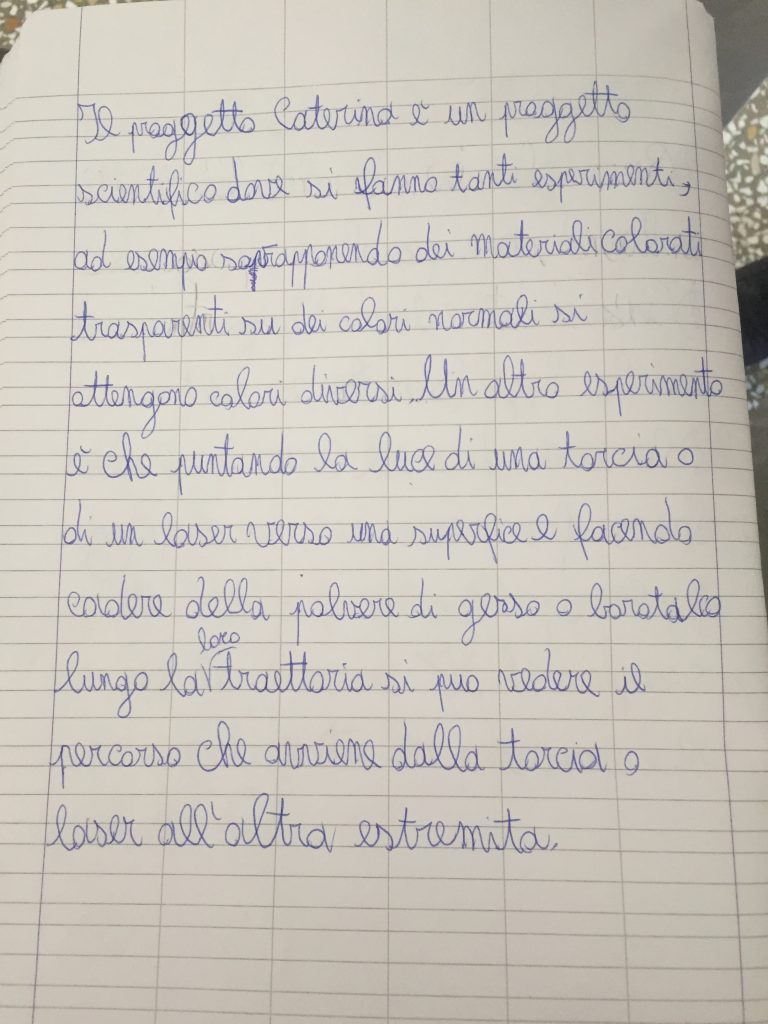 Il proggetto Caterina è un proggetto
scientifico dove si fanno tanti esperimenti,
ad esempio soprapponendo dei materiali colorati
trasparenti su dei colori normali si
ottengono colori diversi. Un altro esperimento
è che puntando la luce di una torcia o
di un laser verso una superfice e facendo
cadere della polvere di gesso o borotalco
lungo la loro traettoria si puo vedere il
percorso che avviene dalla torcia o
laser all'altra estremita.